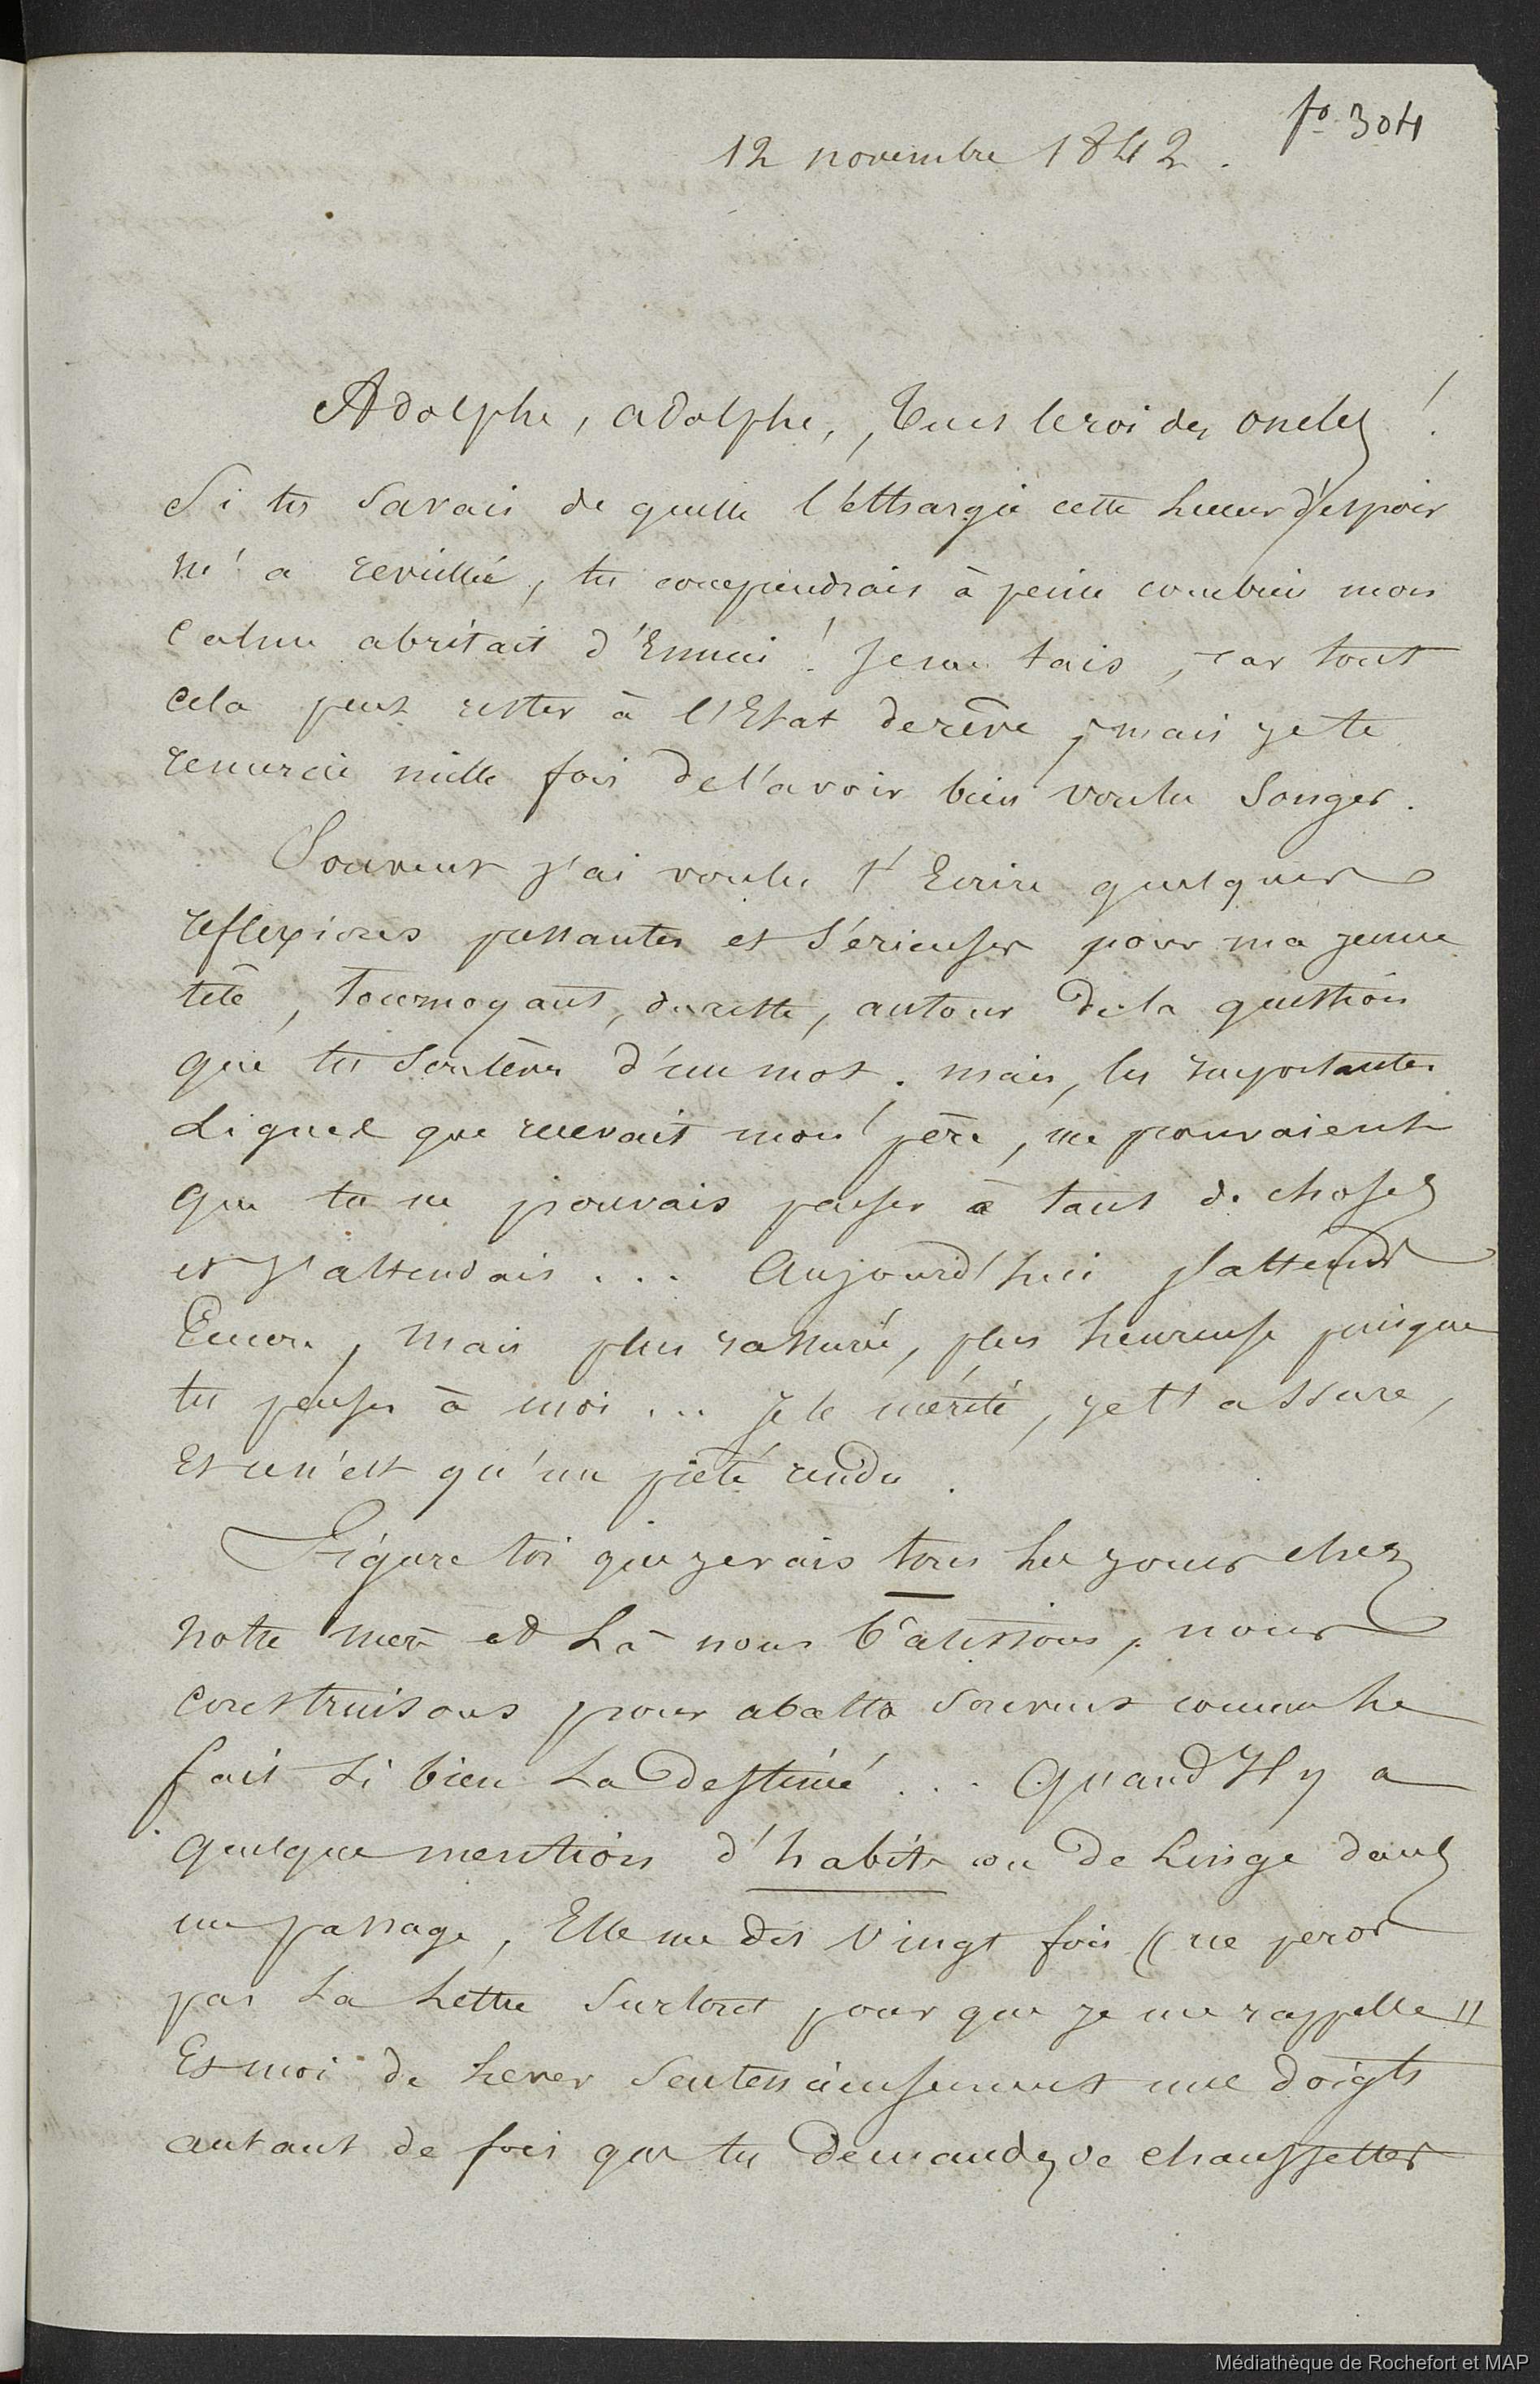 fo 304
12 novembre 1842.
Adolphe, adolphe, tu es le roi des oncles !
Si tu savais de quelle l'éthargie cette lueur d'espoir
m'a réveillée, tu comprendrais à peine combien mon
calme abritait d'Ennui ! Je me tais, car tout
cela peut rester à l'Etat de rêve, mais je te
remercie mille fois de l'avoir bien voulu songer.
Souvent j'ai voulu t'Ecrire quelques
réflexions pensantes et s'érieuses pour ma jeune
tête, tournoyant, du reste, autour de la question
que tu soulève d'un mot. mais, les importantes
lignes que recevait mon père, me prouvaient
que tu ne pouvais penser à tant de choses
et j'attendais ... Aujourd'hui j'attends
Encore, mais plus rassurée, plus heureuse puisque
tu penses à moi ... Je le mérite, je t'assure,
Et ce n'est qu'un prêté rendu.
Figure toi que je vais tous les jours chez
notre mère et là nous bâtissons, nous
construisons pour abattre souvent comme le
fait si bien la destinée ... Quand Il y a
quelque mention d'habits ou de linge dans
un passage, Elle me dit vingt fois (( ne perds
pas la lettre surtout pour que je me rappelle ))
Et moi de lever sentencieusement mes doigts
autant de fois que tu demandes de chaussettes
Médiathèque de Rochefort et MAP